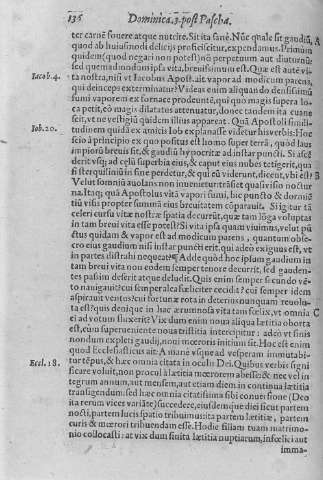 136 Dominica.3.post Pascha.
ter carnē fouere atque nutrire. Sit ita sanè. Nūc quale sit gaudiū,
quod ab huiusmodi delicijs proficiscitur, expendamus. Primùm
quidem (quod negari non potest) nō perpetuum aut diuturnū:
sed quemadmodum ipsa vita, breuissimum est. Quæ est autē vi-
Iacob. 4.
ta nostra, nisi vt Iacobus Apost. ait. vapor ad modicum parens,
qui deinceps exterminatur? Videas enim aliquando densissimū
fumi vaporem ex fornace prodeuntē, qui quo magis supera lo-
ca petit, eò magis dilatatus attenuatur, donec tandem ita euane
scit, vt ne vestigiū quidem illius appareat. Quā Apostoli simili-
Iob. 20.
tudinem quidā ex amicis Iob explanasse videtur his verbis. Hoc
scio à principio ex quo positus est homo super terrā, quòd laus
impiorū breuis sit, & gaudiū hypocritæ ad instar puncti. Si ascē
derit vsq; ad cęlū superbia eius, & caput eius nubes tetigerit, qua
si sterquiliniū in fine perdetur, & qui eū viderunt, dicent, vbi est? B
Velut somniū auolans non inuenietur: trāsiet quasi visio noctur
na. Itaq; quā Apostolus vitā vapori fumi, hic puncto & dormiē
tiū visis propter summā eius breuitatem cōparauit. Si igitur tā
celeri cursu vitæ nostræ spatia decurrūt, quæ tam lōga voluptas
in tam breui vita esse potest? Si vita ipsa quam viuimus, velut pū
ctus quidam & vapor est ad modicum parens, quantum obse-
cro eius gaudium nisi instar puncti erit, qui adeò exiguus est, vt
in partes distrahi nequeat? Adde quòd hoc ipsum gaudium in
tam breui vita non eodem semper tenore decurrit, sed gauden-
tes passim deserit atque deludit. Quis enim semper secundo vē-
to nauigauit? cui semper alea feliciter cecidit? cui semper idem
aspirauit ventus? cui fortunæ rota in deterius nunquam reuolu-
ta est? quis denique in hac ærumnosa vita tam fœlix, vt omnia C
ei ad votum fluxerit? Vix dum enim noua aliqua lætitia oborta
est, cùm superueniente noua tristitia intercipitur: adeò vt finis
nondum expleti gaudij, noui mœroris initium sit. Hoc est enim
quod Ecclesiasticus ait: A mane vsque ad vesperam immutabi-
Eccl. 18.
tur tēpus, & hæc omnia citata in oculis Dei. Quibus verbis signi
ficare voluit, non procul à lætitia mœrorem abesse: & nec vel in
tegrum annum, aut mensem, aut etiam diem in continua lætitia
transigendum: sed hæc omnia citatissima sibi conuersione (Deo
ita rerum vices variāte) succedere, eiusdemque diei sicut partem
nocti, partem lucis spatio tribuimus: ita partem lætitiæ, partem
curis & mœrori tribuendam esse. Hodie filiam tuam matrimo-
nio collocasti: at vix dum finita lætitia nuptiarum, infœlici aut
imma-